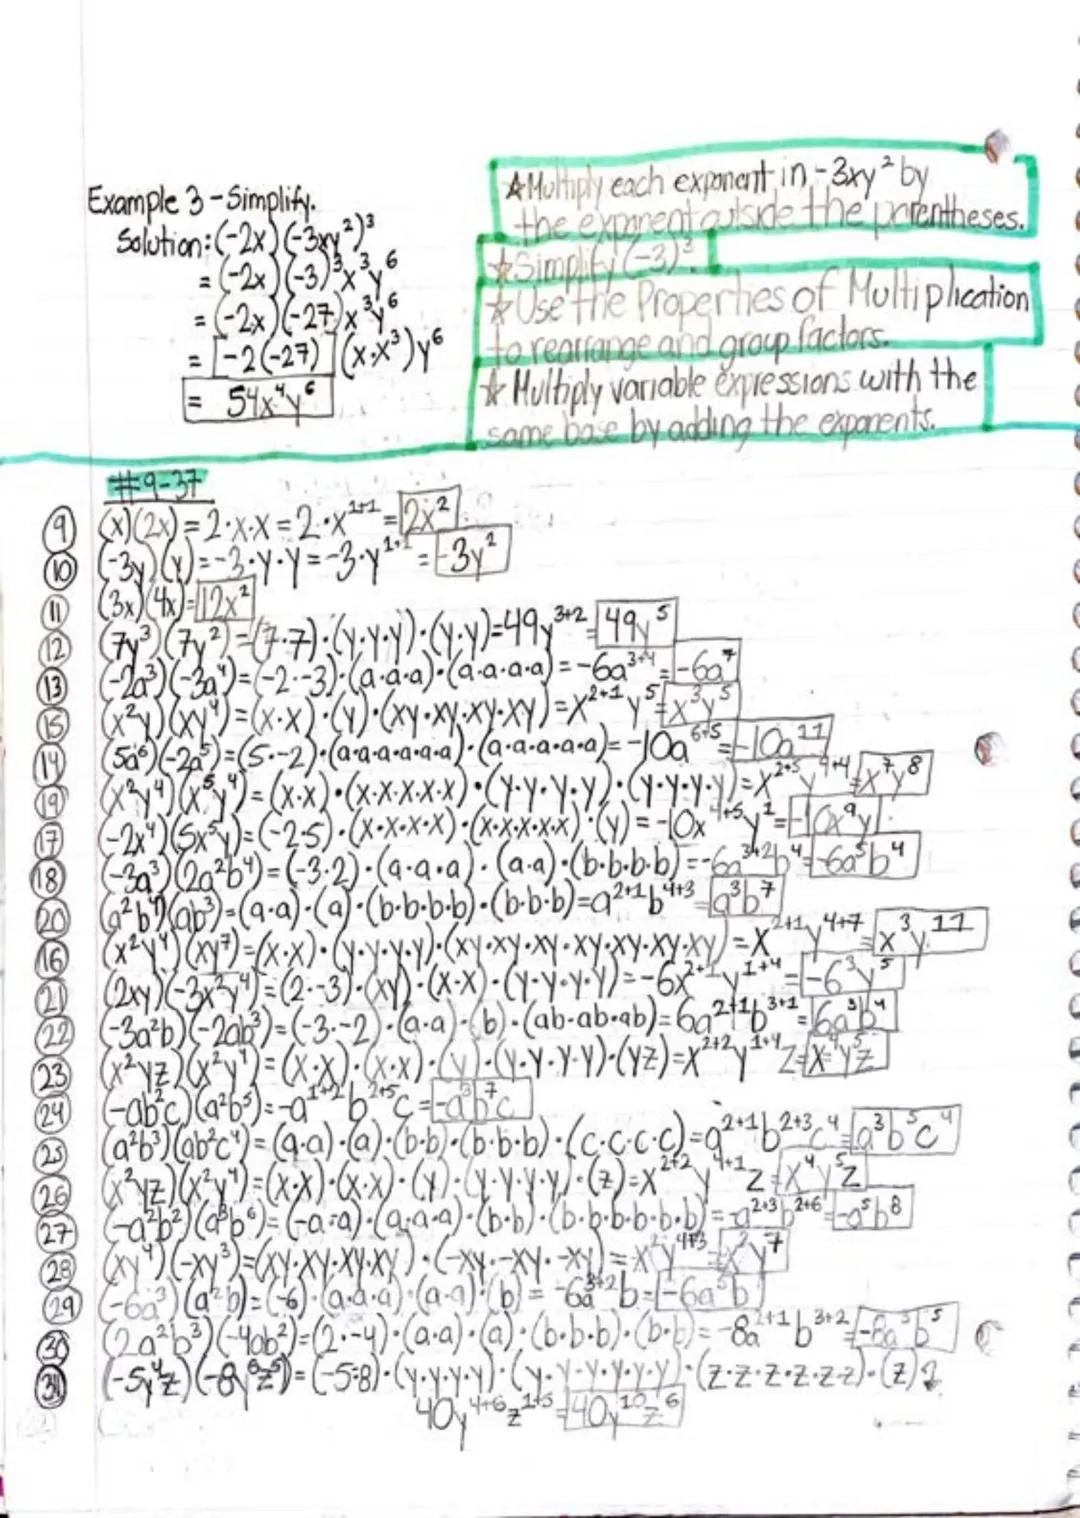 Example 3 - Simplify.
Solution: (-2x)(-3xy²)³
= (-2x)(-3)³x³y⁶
= (-2x)(-27)x³y⁶
= [-2(-27)](x·x³)y⁶
= 54x⁴y⁶
☆Multiply each exponent in -3xy² by
the exponent outside the parentheses.
☆Simplify (-3)³.
☆Use the Properties of Multiplication
to rearrange and group factors.
☆Multiply variable expressions with the
same base by adding the exponents.
#9-37
9 (x)(2x)=2·x·x=2·x¹⁺¹=2x²
10 (-3y)(y)=-3·y·y=-3·y¹⁺¹=-3y²
11 (3x)(4x)=12x²
12 (7y³)(7y²)=(7·7)·(y·y·y)·(y·y)=49y³⁺²=49y⁵
13 (-2a³)(-3a⁴)=(-2·-3)·(a·a·a)·(a·a·a·a)=-6a³⁺⁴=-6a⁷
15 (x²y)(xy⁴)=(x·x)·(y)·(xy·xy·xy·xy)=x²⁺¹y⁵=x³y⁵
14 (5a⁶)(-2a⁵)=(5·-2)·(a·a·a·a·a·a)·(a·a·a·a·a)=-10a⁶⁺⁵=-10a¹¹
19 (x²y⁴)(x⁵y⁴)=(x·x)·(x·x·x·x·x)·(y·y·y·y)·(y·y·y·y)=x²⁺⁵y⁴⁺⁴=x⁷y⁸
17 (-2x⁴)(5x⁵y)=(-2·5)·(x·x·x·x)·(x·x·x·x·x)·(y)=-10x⁴⁺⁵y¹=-10x⁹y
18 (-3a³)(2a²b⁴)=(-3·2)·(a·a·a)·(a·a)·(b·b·b·b)=-6a³⁺²b⁴=-6a⁵b⁴
20 (a²b⁴)(ab³)=(a·a)·(a)·(b·b·b·b)·(b·b·b)=a²⁺¹b⁴⁺³=a³b⁷
16 (x²y⁴)(xy⁷)=(x·x)·(y·y·y·y)·(xy·xy·xy·xy·xy·xy·xy)=x²⁺¹y⁴⁺⁷=x³y¹¹
21 (2xy)(-3x²y⁴)=(2·-3)·(xy)·(x·x)·(y·y·y·y)=-6x²⁺¹y¹⁺⁴=-6³y⁵
22 (-3a²b)(-2ab³)=(-3·-2)·(a·a)·(b)·(ab·ab·ab)=6a²⁺¹b³⁺¹=6a³b⁴
23 (x²yz)(x²y⁴)=(x·x)·(x·x)·(y)·(y·y·y·y)·(yz)=x²⁺²y¹⁺⁴z=x⁴y⁵z
24 (-ab²c)(a²b⁵)=-a¹⁺²b²⁺⁵c=-a³b⁷c
25 (a²b³)(ab²c⁴)=(a·a)·(a)·(b·b)·(b·b·b)·(c·c·c·c)=a²⁺¹b²⁺³c⁴=a³b⁵c⁴
26 (x²yz)(x²y⁴)=(x·x)·(x·x)·(y)·(y·y·y·y)·(z)=x²⁺²y⁴⁺¹z=x⁴y⁵z
27 (-a²b²)(a³b⁶)=(-a·a)·(a·a·a)·(b·b)·(b·b·b·b·b·b)=-a²⁺³b²⁺⁶=-a⁵b⁸
28 (xy⁴)(-xy³)=(xy·xy·xy·xy)·(-xy·-xy·-xy)=x²y⁴⁺³=x²y⁷
29 (-6a³)(a²b)=(-6)·(a·a·a)·(a·a)·(b)=-6a³⁺²b=-6a⁵b
30 (2a²b³)(-4ab²)=(2·-4)·(a·a)·(a)·(b·b·b)·(b·b)=-8a²⁺¹b³⁺²=-8a³b⁵
31 (-5y⁴z)(-8y⁶z⁵)=(-5·8)·(y·y·y·y)·(y·y·y·y·y·y)·(z·z·z·z·z·z)·(z)
40y⁴⁺⁶z¹⁺⁵=40y¹⁰z⁶